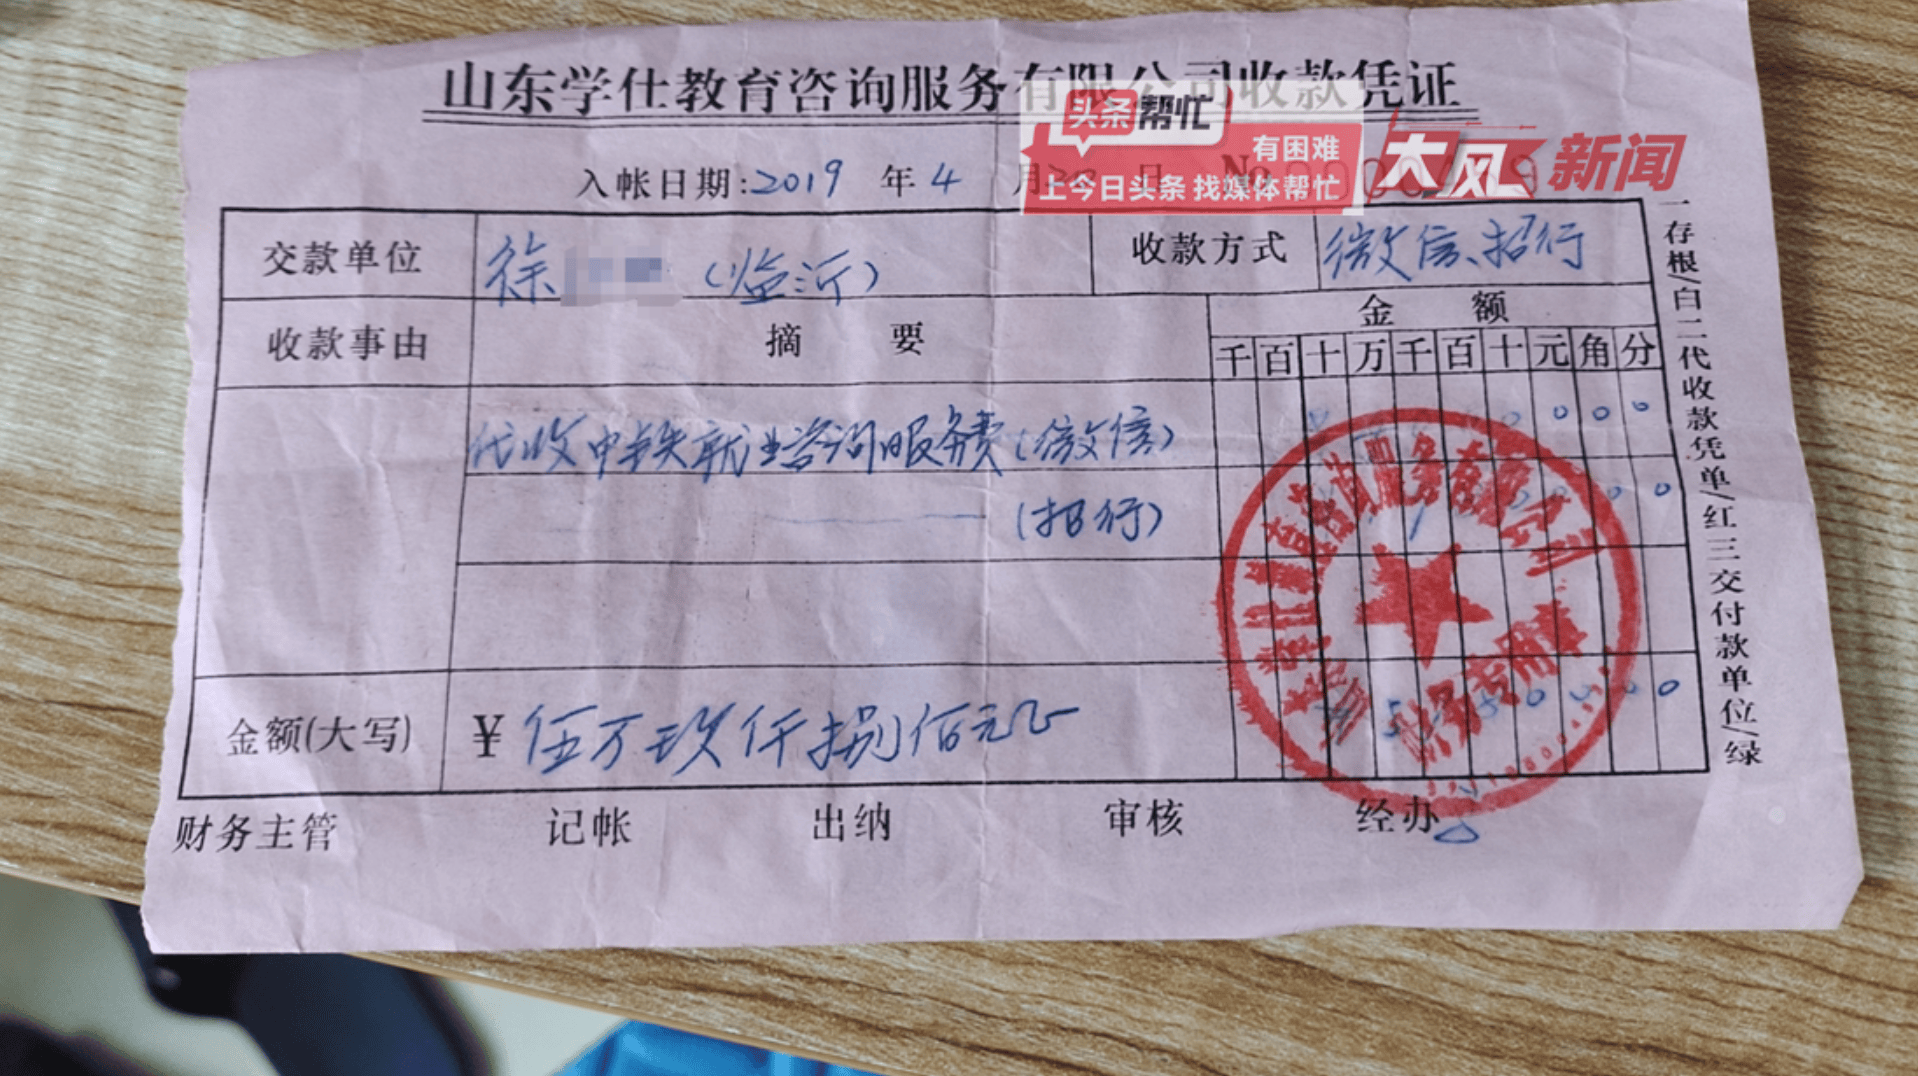 山东学仕教育咨询服务有限公司收款凭证
头条帮忙
有困难
上今日头条 找媒体帮忙
大风新闻
入帐日期:2019 年 4 月 日 No
交款单位 徐 (临沂) 收款方式 微信、招行
收款事由 摘要 金额
千 百 十 万 千 百 十 元 角 分
代收中铁就业咨询服务费(微信)
(招行)
金额(大写) ¥ 伍万玖仟捌佰元正
财务专用章
财务主管 记帐 出纳 审核 经办
一存根/白二代收款凭单/红三交付款单位/绿